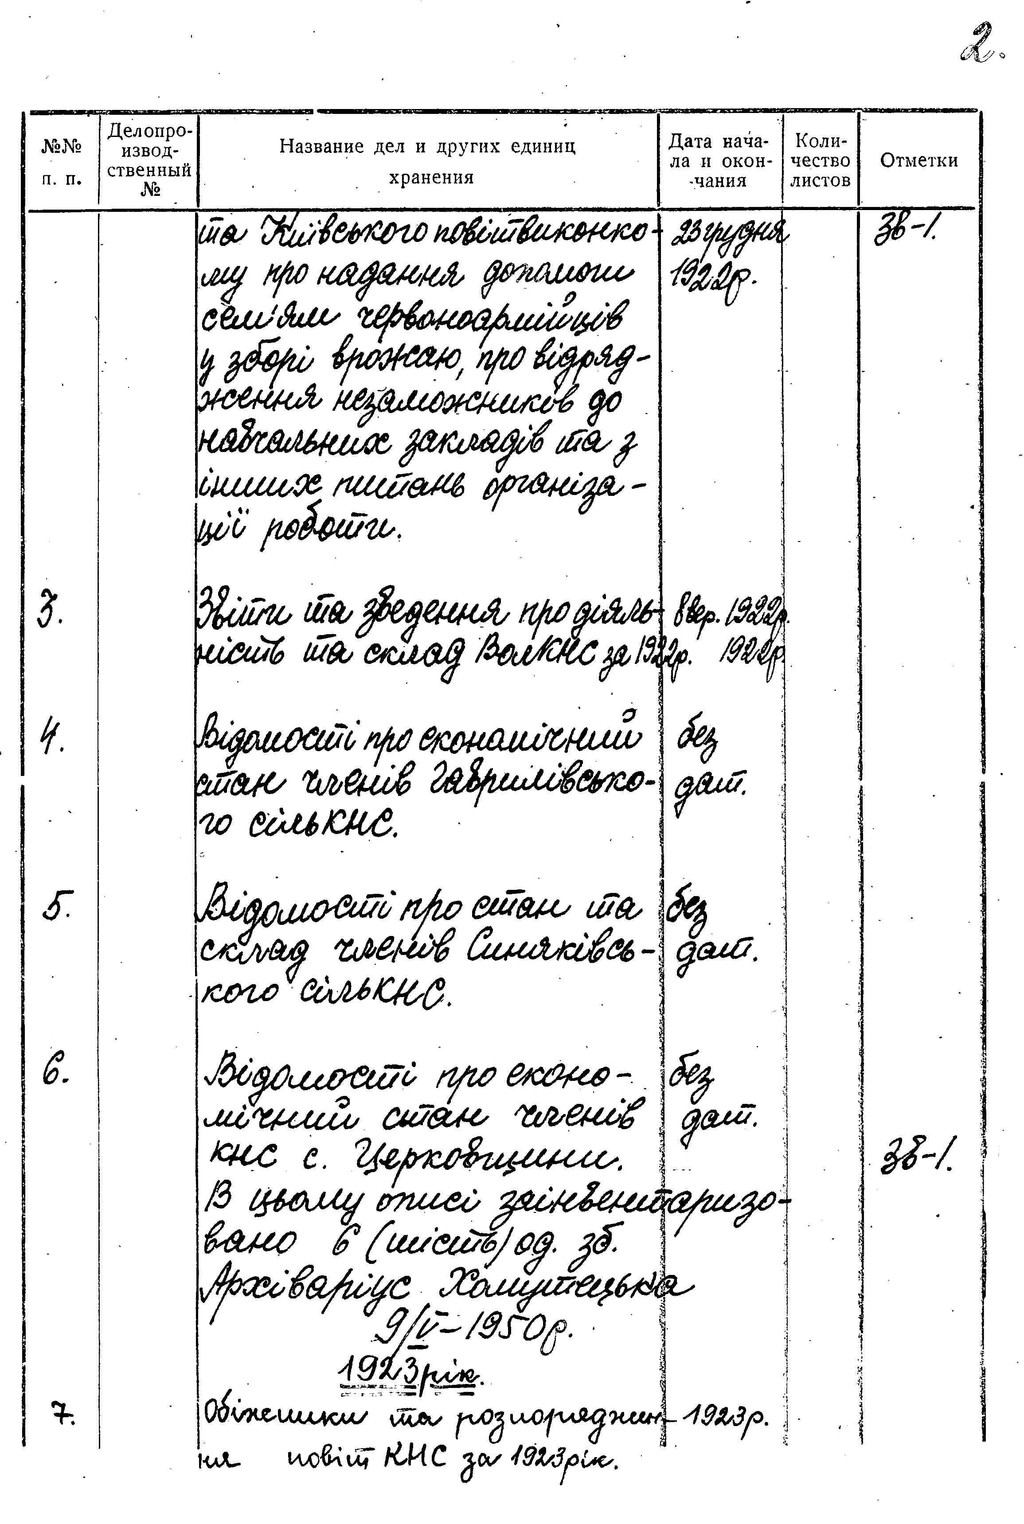 2.
№№ п. п.
Делопро-
извод-
ственный
№
Название дел и других единиц
хранения
Дата нача-
ла и окон-
-чания
Коли-
чество
листов
Отметки
та Київського повітвиконко- 23 грудня зв-1.
му про надання допомоги 1922р.
сем'ям червоноармійців
у зборі врожаю, про відряд-
ження незаможників до
навчальних закладів та з
інших питань організа-
ції роботи.
3. Звіти та зведення про діяль- 8 вер. 1922р.
ність та склад ВолКНС за 1922р. 1922р.
4. Відомості про економічний без
стан членів Гаврилівсько- дат.
го сільКНС.
5. Відомості про стан та без
склад членів Синяківсь- дат.
кого сільКНС.
6. Відомості про еконо- без
мічний стан членів дат.
КНС с. Церковщини. зв-1.
В цьому описі заінвентаризо-
вано 6 (шість) од. зб.
Архіваріус Хомутецька
9/V-1950р.
1923 рік.
7. Обіжники та розпоряджен- 1923р.
ня повіт КНС за 1923 рік.